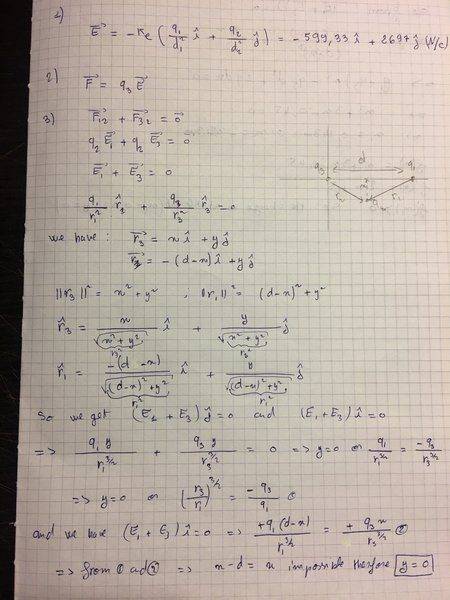 1)
E⃗ = -Ke ( q₁/d₁² î + q₂/d₂² ĵ ) = - 599,33 î + 2697 ĵ (N/C)
2) F⃗ = q₃ E⃗
3) F⃗₁₂ + F⃗₃₂ = 0⃗
q₂ E⃗₁ + q₂ E⃗₃ = 0
E⃗₁ + E⃗₃ = 0
d
q₃ q₁
q₁/r₁² r̂₁ + q₃/r₃² r̂₃ = 0
we have : r⃗₃ = x î + y ĵ
= - (d-x) î + y ĵ
||r₃||² = x² + y² ; ||r₁||² = (d-x)² + y²
r̂₃ = x/√(x² + y²) î + y/√(x² + y²) ĵ
r₃² r₃²
r̂₁ = -(d-x)/√((d-x)² + y²) î + y/√((d-x)² + y²) ĵ
r₁² r₁²
So we get (E₁ + E₃) ĵ = 0 and (E₁ + E₃) î = 0
=> q₁ y/r₁^3/2 + q₃ y/r₃^3/2 = 0 => y=0 or q₁/r₁^3/2 = -q₃/r₃^3/2
=> y=0 or (r₃/r₁)^3/2 = -q₃/q₁ ①
and we have (E₁ + E₃) î = 0 => +q₁ (d-x)/r₁^3/2 = + q₃ x/r₃^3/2 ②
=> from ① ad ② => x-d = x impossible therefore y = 0